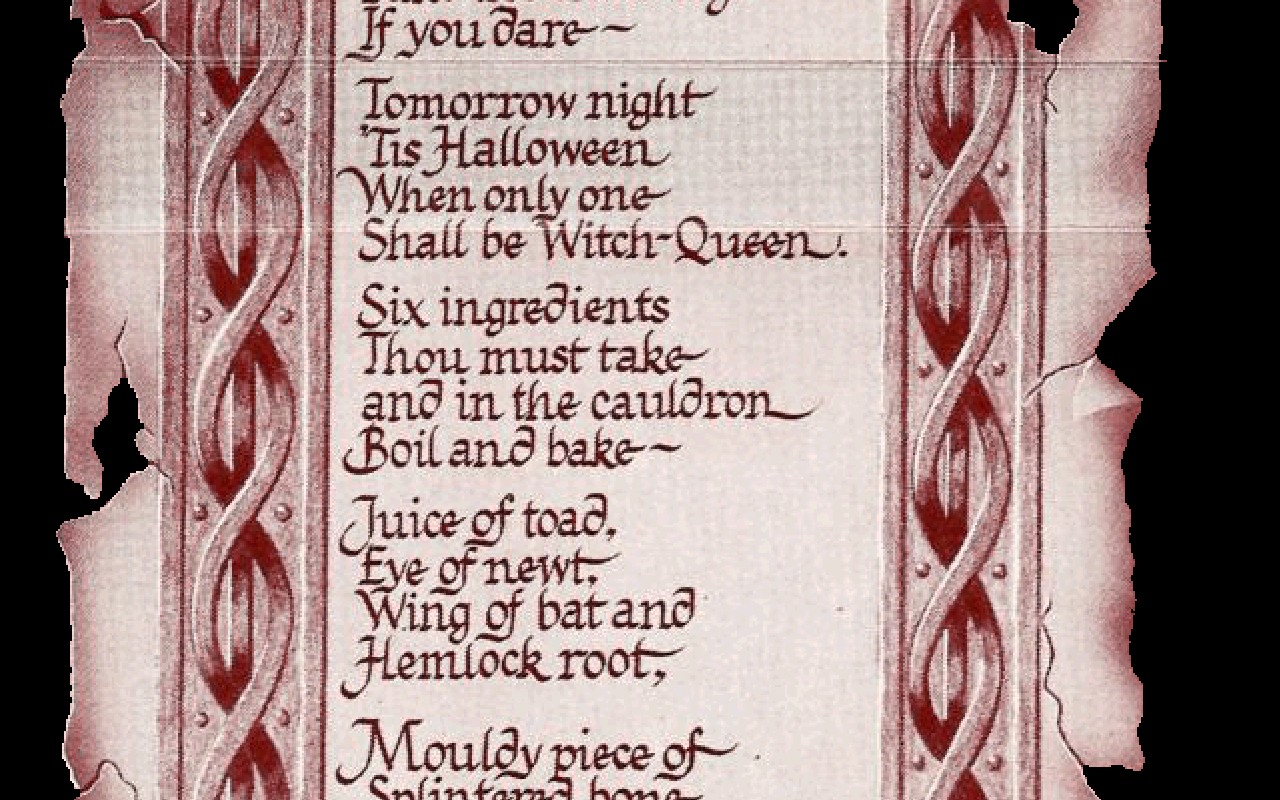 If you dare~
Tomorrow night
'Tis Halloween
When only one
Shall be Witch-Queen.
Six ingredients
Thou must take
and in the cauldron
Boil and bake~
Juice of toad,
Eye of newt,
Wing of bat and
Hemlock root,
Mouldy piece of
Splintered bone